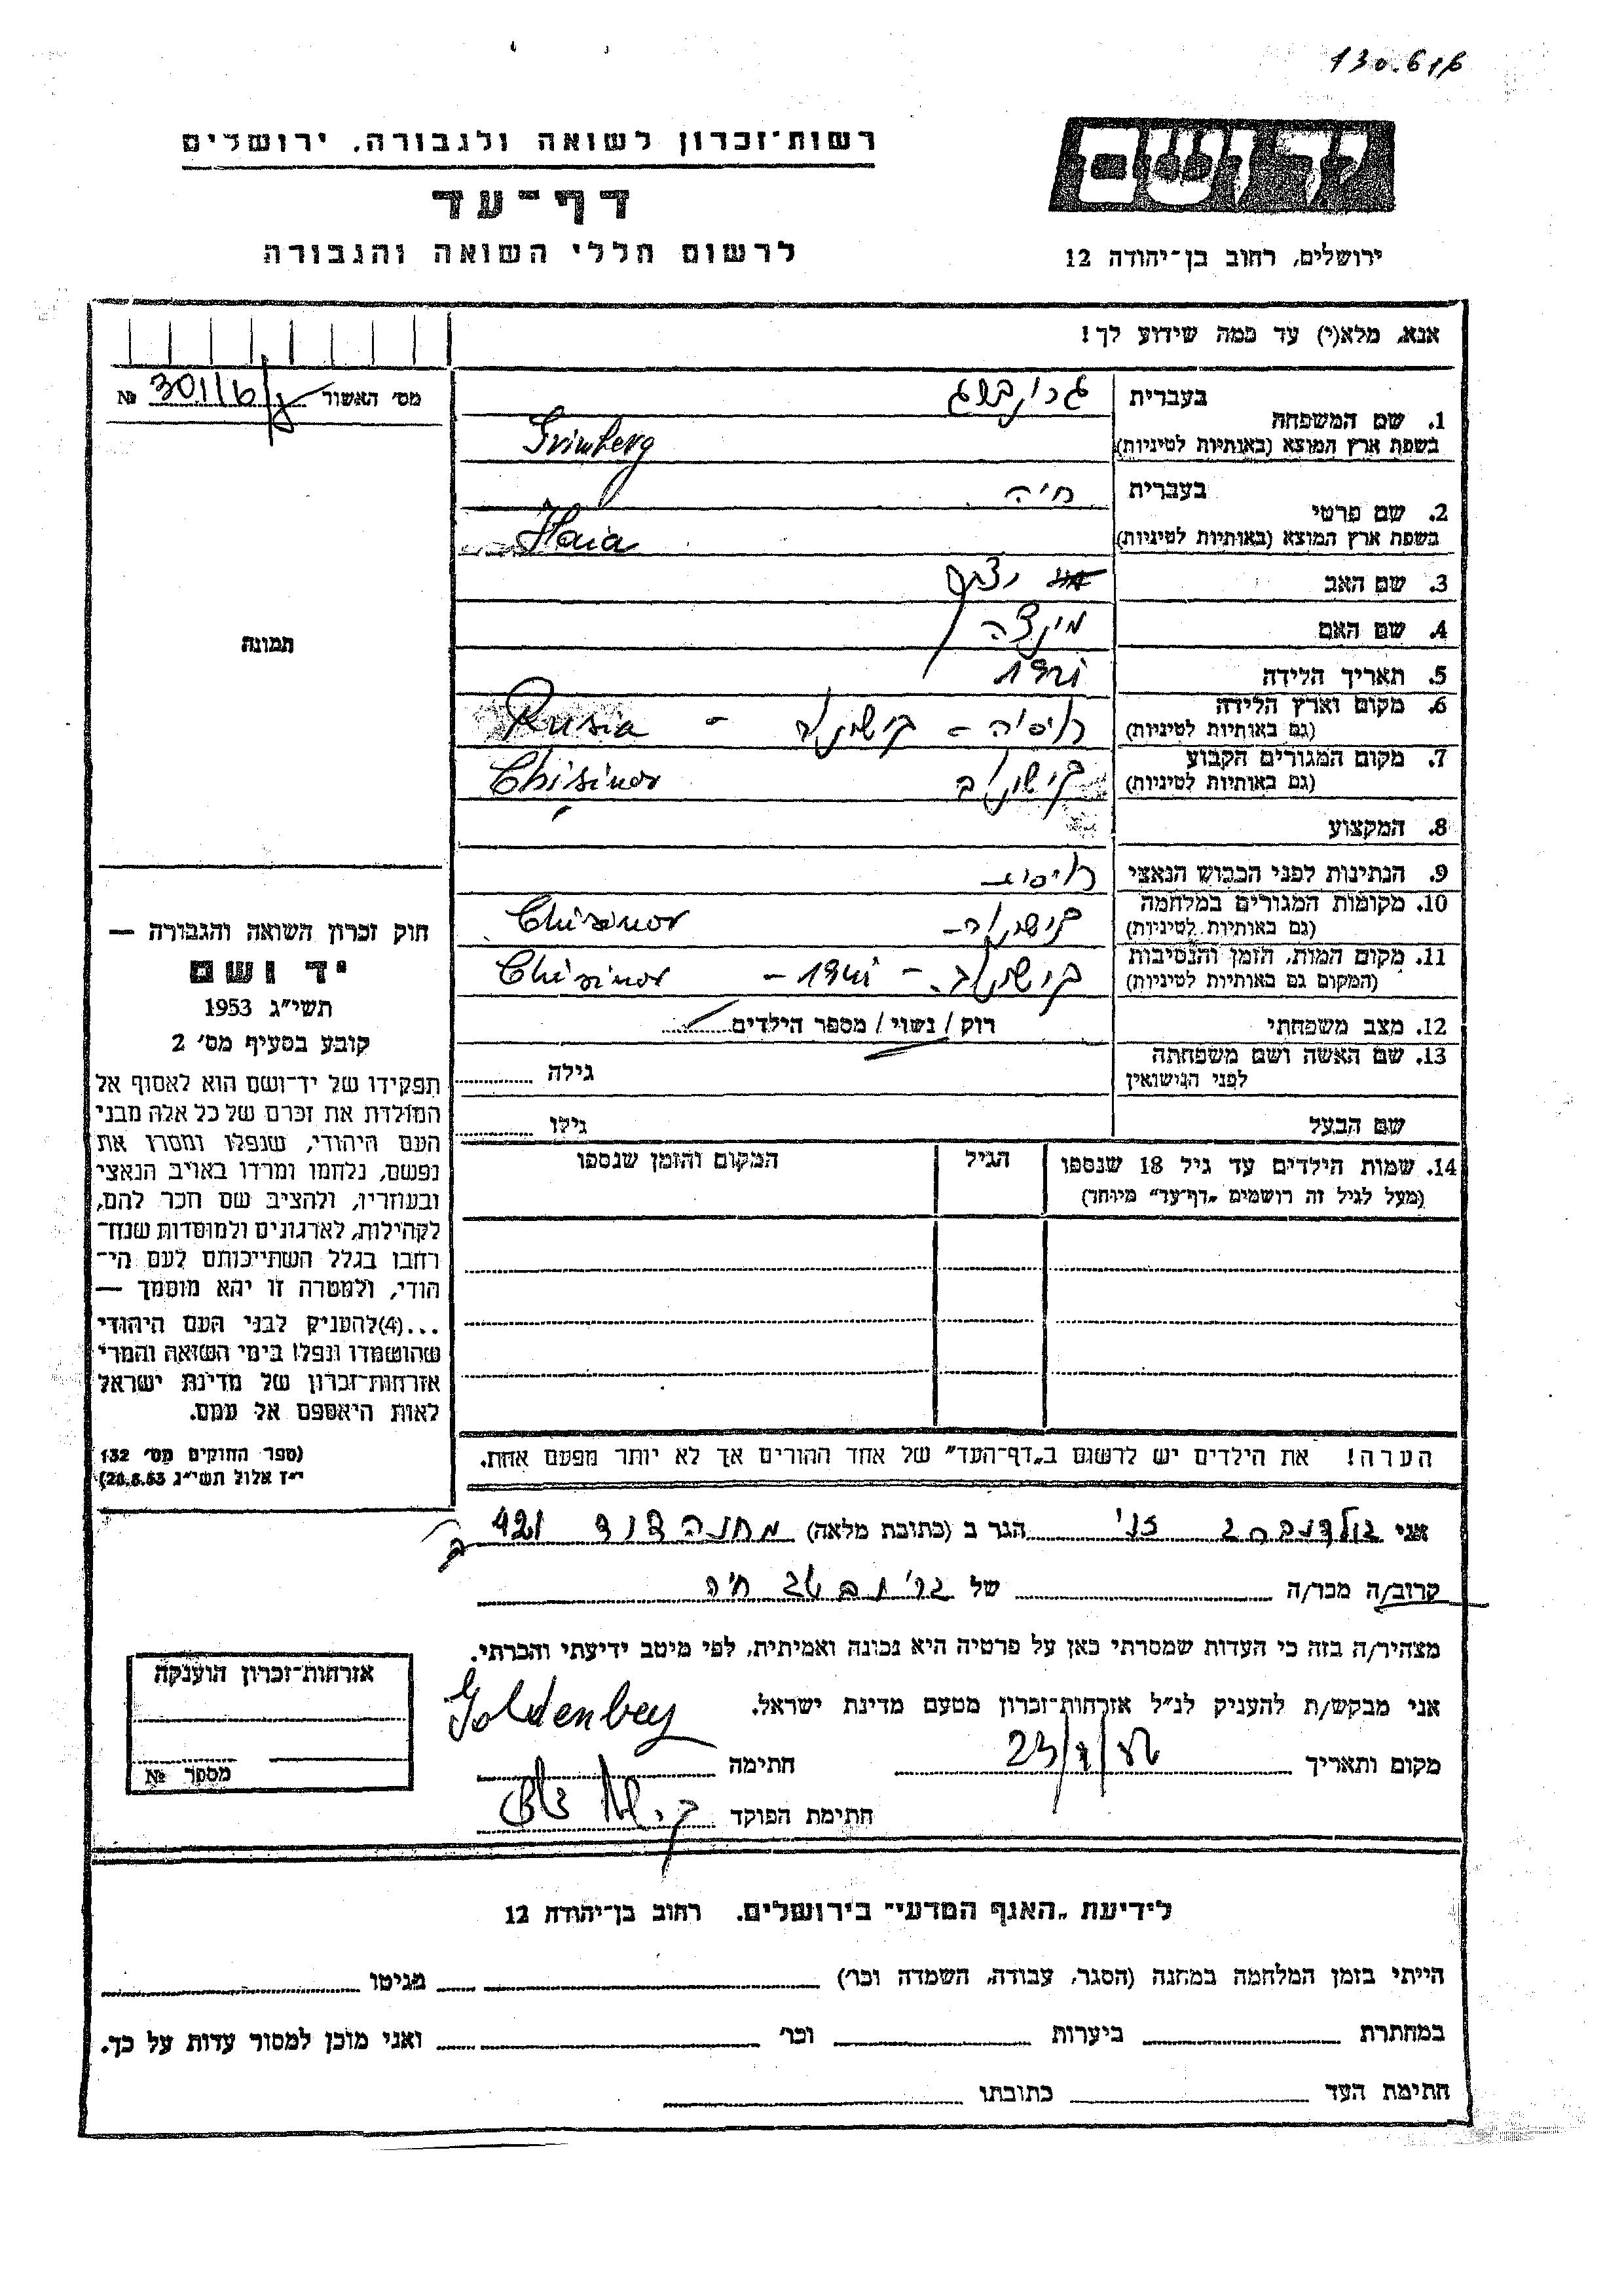 130.616
רשות־זכרון לשואה ולגבורה, ירושלים
דף־עד
לרשום חללי השואה והגבורה
ידושם
ירושלים, רחוב בן־יהודה 12
אנא, מלא(י) עד כמה שידוע לך!
מס׳ האשור № 301/6
1. שם המשפחה
בעברית גרינברג
בשפת ארץ המוצא (באותיות לטיניות) Grimberg
2. שם פרטי
בעברית חיה
בשפת ארץ המוצא (באותיות לטיניות) Haia
3. שם האב
4. שם האם
5. תאריך הלידה
6. מקום וארץ הלידה
(גם באותיות לטיניות) רוסיה – קישינוב – Rusia
7. מקום המגורים הקבוע
(גם באותיות לטיניות) קישינוב Chisinov
8. המקצוע
9. הנתינות לפני הכבוש הנאצי
10. מקומות המגורים במלחמה
(גם באותיות לטיניות) קישינוב Chisinov
11. מקום המות, הזמן והנסיבות
(המקום גם באותיות לטיניות) קישינוב – 1941 – Chisinov
12. מצב משפחתי רווק / נשוי / מספר הילדים
13. שם האשה ושם משפחתה
לפני הנישואין גילה
שם הבעל גילו
14. שמות הילדים עד גיל 18 שנספו
(מעל לגיל זה רושמים „דף־עד״ מיוחד)
הגיל
המקום והזמן שנספו
הערה! את הילדים יש לרשום ב„דף־העד״ של אחד ההורים אך לא יותר מפעם אחת.
תמונה
חוק זכרון השואה והגבורה —
יד ושם
תשי״ג 1953
קובע בסעיף מס׳ 2
תפקידו של יד־ושם הוא לאסוף אל
המולדת את זכרם של כל אלה מבני
העם היהודי, שנפלו ומסרו את
נפשם, נלחמו ומרדו באויב הנאצי
ובעוזריו, ולהציב שם וזכר להם,
לקהילות, לארגונים ולמוסדות שנח־
רבו בגלל השתייכותם לעם הי־
הודי, ולמטרה זו יהא מוסמך —
...(4) להעניק לבני העם היהודי
שהושמדו ונפלו בימי השואה והמרי
אזרחות־זכרון של מדינת ישראל
לאות היאספם אל עמם.
(ספר החוקים מס׳ 132
י״ז אלול תשי״ג 28.8.53)
אני גולדנברג הגר ב (כתובת מלאה) מחנה דוד 421
קרוב/ה מכר/ה של גרינברג חיה
מצהיר/ה בזה כי העדות שמסרתי כאן על פרטיה היא נכונה ואמיתית, לפי מיטב ידיעתי והכרתי.
אני מבקש/ת להעניק לנ״ל אזרחות־זכרון מטעם מדינת ישראל. Goldenberg
מקום ותאריך חתימה
חתימת הפוקד
אזרחות־זכרון הוענקה
מספר №
לידיעת „האגף המדעי״ בירושלים, רחוב בן־יהודה 12
הייתי בזמן המלחמה במחנה (הסגר, עבודה, השמדה וכו׳) בגיטו
במחתרת ביערות וכו׳ ואני מוכן למסור עדות על כך.
חתימת העד כתובתו